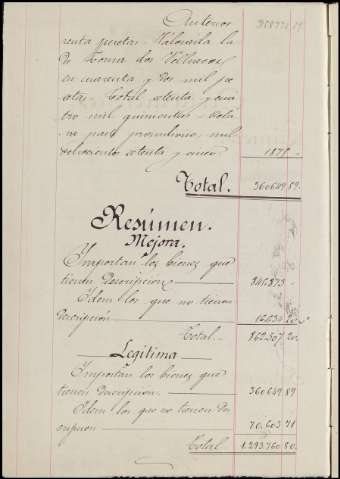 Anterior 358774 19
renta pesetas. Valorada la
de Loma dos Vallados
en cuarenta y dos mil pe
setas. Total ochenta y cua
tro mil quinientas
mil
ochocientos setenta y cinco 1875 -
Total. 360649 89.
Resúmen.
Mejora.
Importan los bienes que
tienen descripcion
Idem los que no tienen
descripcion
Total. 862.507 20.
Legitima
Importan los bienes que
tienen descripcion. 360649 89
Idem los que no tienen des
cripcion 70.603 71
Total 1.293.760 80.